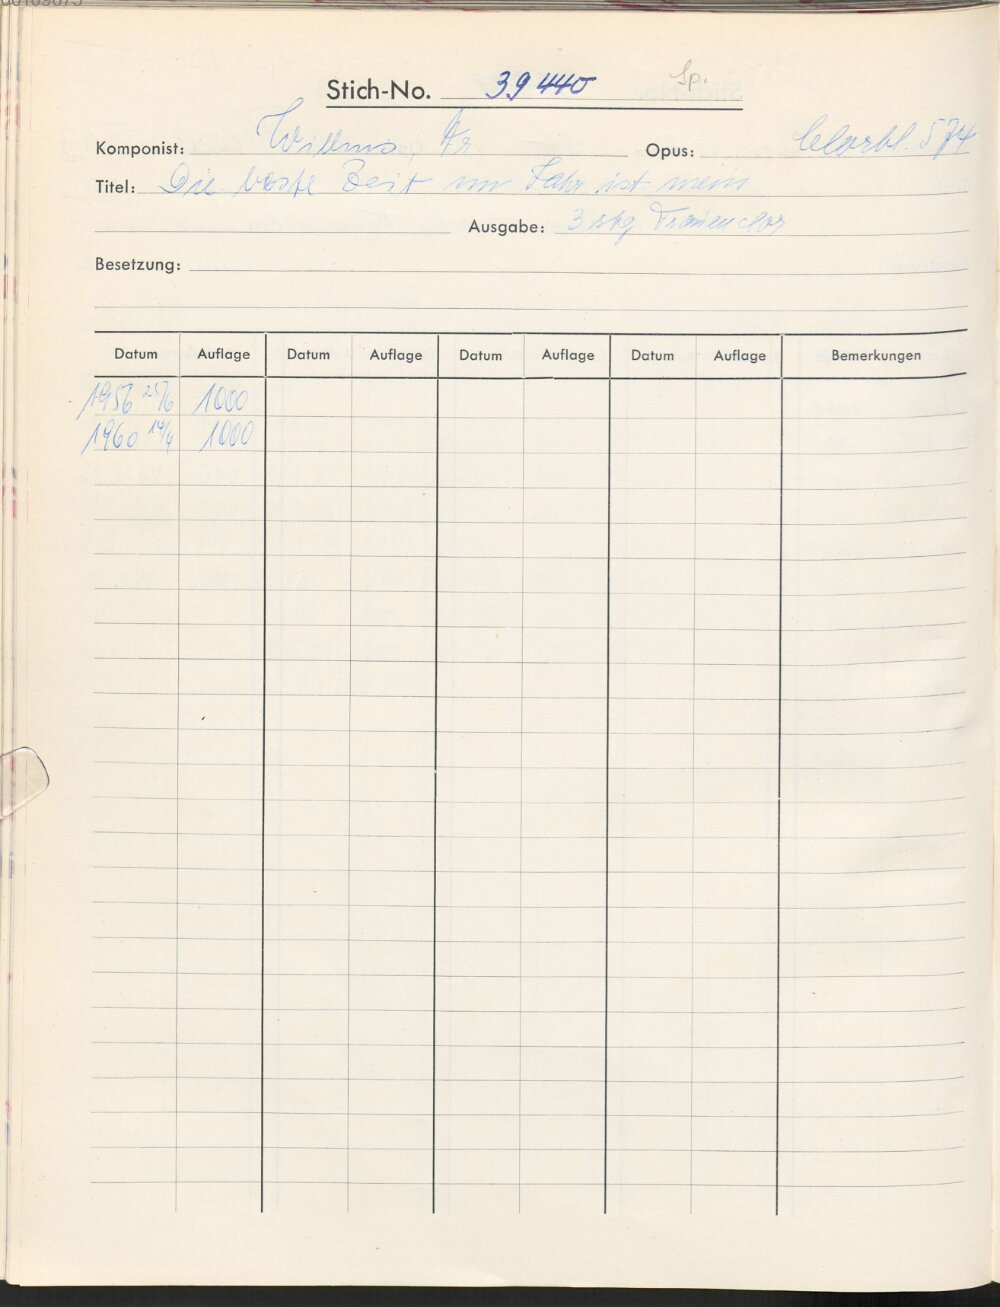 Stich-No. 39440 Sp.
Komponist: Willms, Fr. Opus: Chorbl. 574
Titel: Die beste Zeit im Jahr ist mein
Ausgabe: 3 stg. Frauenchor
Besetzung:
Datum Auflage Datum Auflage Datum Auflage Datum Auflage Bemerkungen
1956 25/6 1000
1960 14/4 1000